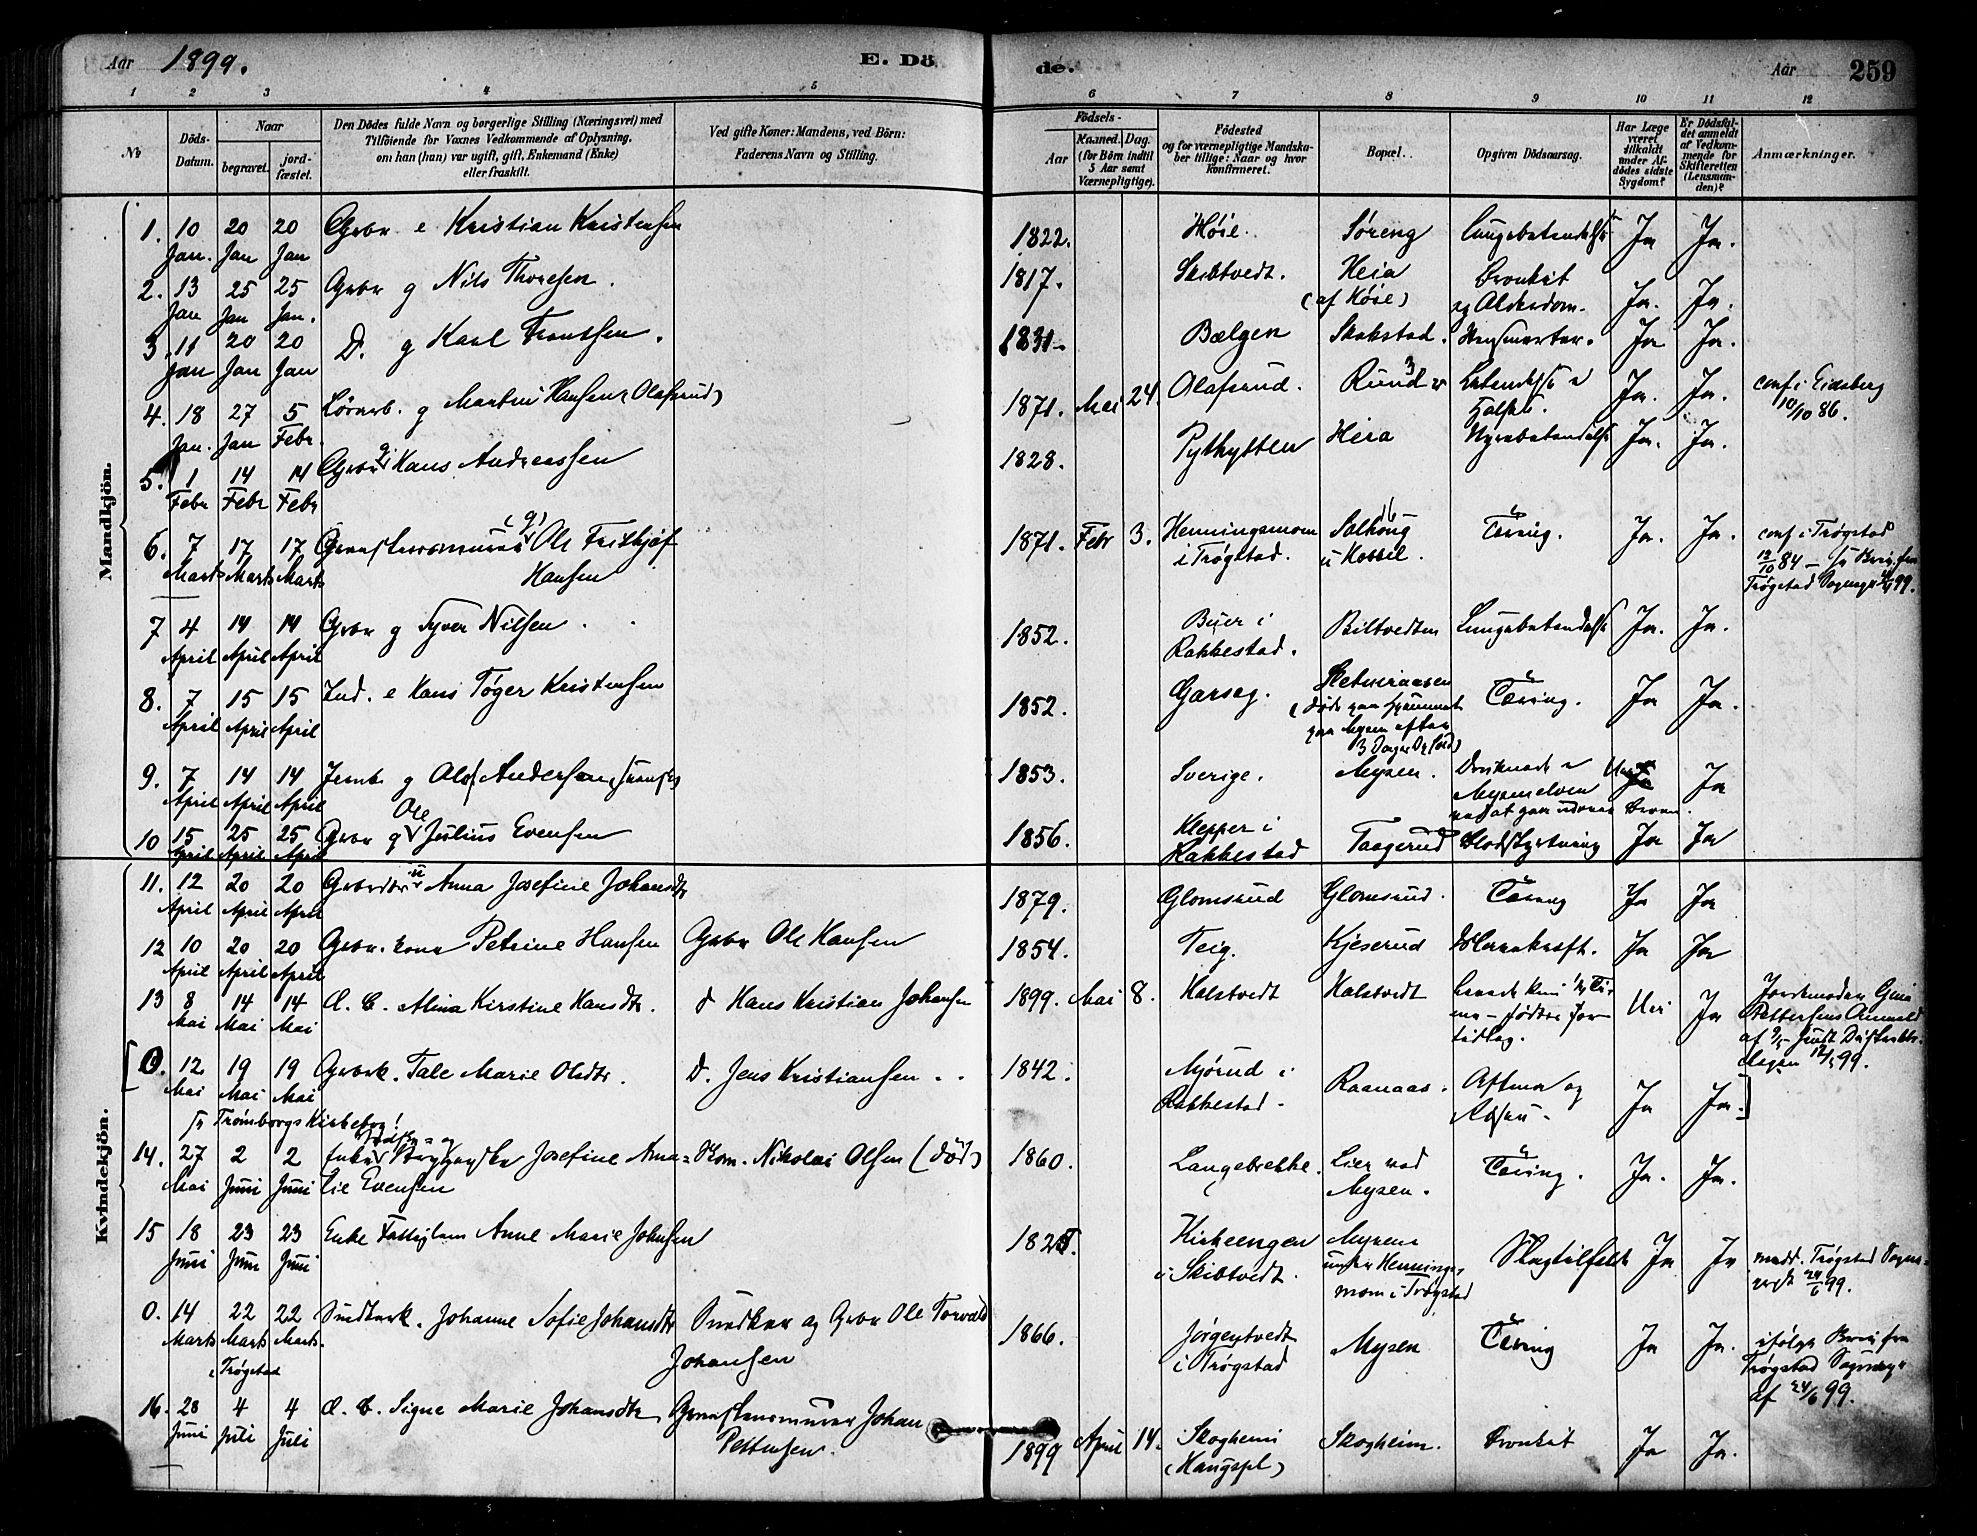 Aar 1899.
E. Dö
de.
Aar
259
1 2 3 4 5 6 7 8 9 10 11 12
№
Döds-
Datum.
Naar
begravet.
jord-
fæstet.
Den Dödes fulde Navn og borgerlige Stilling (Næringsvei) med
Tilföiende for Voxnes Vedkommende af Oplysning,
om han (hun) var ugift, gift, Enkemand (Enke)
eller fraskilt.
Ved gifte Koner: Mandens, ved Börn:
Faderens Navn og Stilling.
Födsels-
Aar
Maaned. Dag.
(for Börn indtil
5 Aar samt
Værnepligtige).
Födested
og for værnepligtige Mandska-
ber tillige: Naar og hvor
konfirmeret.
Bopæl.
Opgiven Dödsaarsag.
Har Læge
været
tilkaldt
under Af-
dödes sidste
Sygdom?
Er Dödsfal-
det anmeldt
af Vedkom-
mende for
Skifteretten
(Lensman-
den)?
Anmærkninger.
Mandkjön.
1. 10 Jan. 20 Jan 20 Jan Gbr e Kristian Kristensen 1822. Høie. Søreng Lungebetændelse Ja Ja.
2. 13 Jan 25 Jan 25 Jan. Gbr g Nils Thoresen. 1817. Skibtvedt. Heia (af Höie) Bronkit og Alderdom. Ja. Ja.
3. 11 Jan 20 Jan 20 Jan D. g Karl Frantsen. 1831. Bælgen Skakstad. Ja Ja.
4. 18 Jan. 27 Jan 5 Febr. g Martin Hansen (Olafsrud) 1871. Mai 24. Olafsrud. Rund Ja. Ja. conf. i Eidsberg 10/10 86.
5. 1 Febr 14 Febr 14 Febr Gbr g Hans Andreassen 1828. Pythytten Heia Nyrebetændelse Ja. Ja.
6. 7 Marts 17 Marts 17 Marts (g) Ole Fritkjof Hansen 1871. Febr 3. Henningsmom i Trøgstad. Tæring. Ja. Ja. conf i Trøgstad 12/10 84 –
7 4 April 14 April 14 April Gbr g Syver Nilsen. 1852. Buer i Rakkestad. Biltvedten Lungebetændelse Ja. Ja.
8. 7 April 15 April 15 April Ind. e Hans Tøger Kristensen 1852. Garseg. Tæring. Ja Ja.
9. 7 April 14 April 14 April g Olof Andersen 1853. Sverige. Mysen. Druknede i Mysenelven Ja
10 15 April 25 April 25 April Gbr g Ole Julius Evensen 1856. Klepper i Rakkestad Taagerud Blodstyrtning Ja Ja
Kvindekjön.
11. 12 April 20 April 20 April u Anna Josefine Johansdtr 1879. Glomsrud Glomsrud. Tæring Ja Ja
12 10 April 20 April 20 April Gbr. kone Petrine Hansen Gbr Ole Hansen 1854. Teig. Kjeserud Ja Ja
13 8 Mai 14 Mai 14 Mai Æ. B. Alma Kirstine Hansdtr. d Hans Kristian Johansen 1899. Mai 8. Halstvedt Halstvedt Levede kun ½ Ti- me – födtes for tidlig. Nei Ja Jordmoder Gina
[0. 12 Mai 19 Mai 19 Mai Gbrk. Tale Marie Olsdtr. D. Jens Kristiansen 1842. Mjørud i Rakkestad. Raanaas. Ja Ja.]
Trømborgs Kirkebog!
14. 27 Mai 2 Juni 2 Juni Enke Josefine Ama- lie Evensen Nikolai Olsen (död) 1860. Langebrekke. Lier ved Mysen. Tæring. Ja. Ja.
15 18 Juni 23 Juni 23 Juni Enke Fattiglem Anne Marie Johnsen Kirkeengen i Skibtvedt. Mysen under Hennings- mom i Trøgstad Slagtilfælde Ja Ja medd. Trøgstad
0. 14 Marts 22 Marts 22 Marts. i Trøgstad Snedkerk. Johanne Sofie Johansdtr Snedker og Gbr Ole Torvald Johansen 1866. Jørgentvedt i Trøgstad Mysen Tæring Ja Ja. ifølge Brev fra Trøgstad af 24/6 99.
16. 28 Juni 4 Juli 4 Juli Æ. B. Signe Marie Johansdtr Johan Pettersen. 1899 April 14. Skogheim (Haugspl) Skogheim. Bronkit Ja Ja.